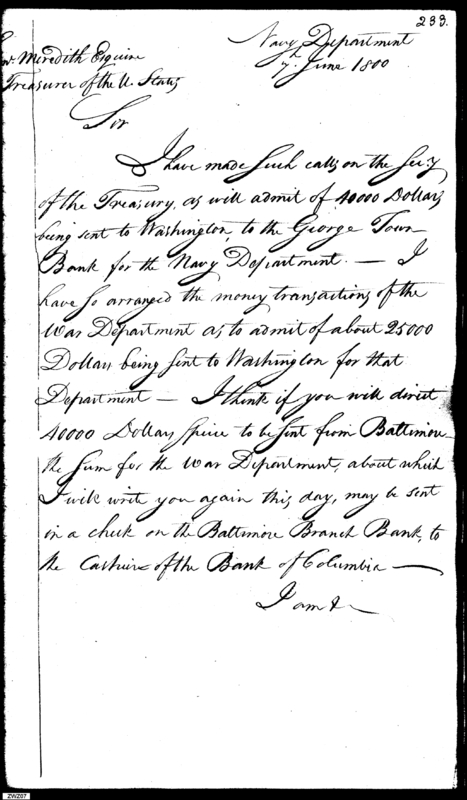 233.
Navy Department
7th June 1800
Meredith Esquire
Treasurer of the U. States
Sir
I have made such calls on the Secy
of the Treasury, as will admit of 40000 Dollars
being sent to Washington, to the George Town
Bank for the Navy Department. — I
have so arranged the money transactions of the
War Department as to admit of about 25000
Dollars being sent to Washington for that
Department — I think if you will direct
40000 Dollars specie to be sent from Baltimore
the sum for the War Department, about which
I will write you again this day, may be sent
in a check on the Baltimore Branch Bank, to
the Cashier of the Bank of Columbia —
I am &
ZWZ07